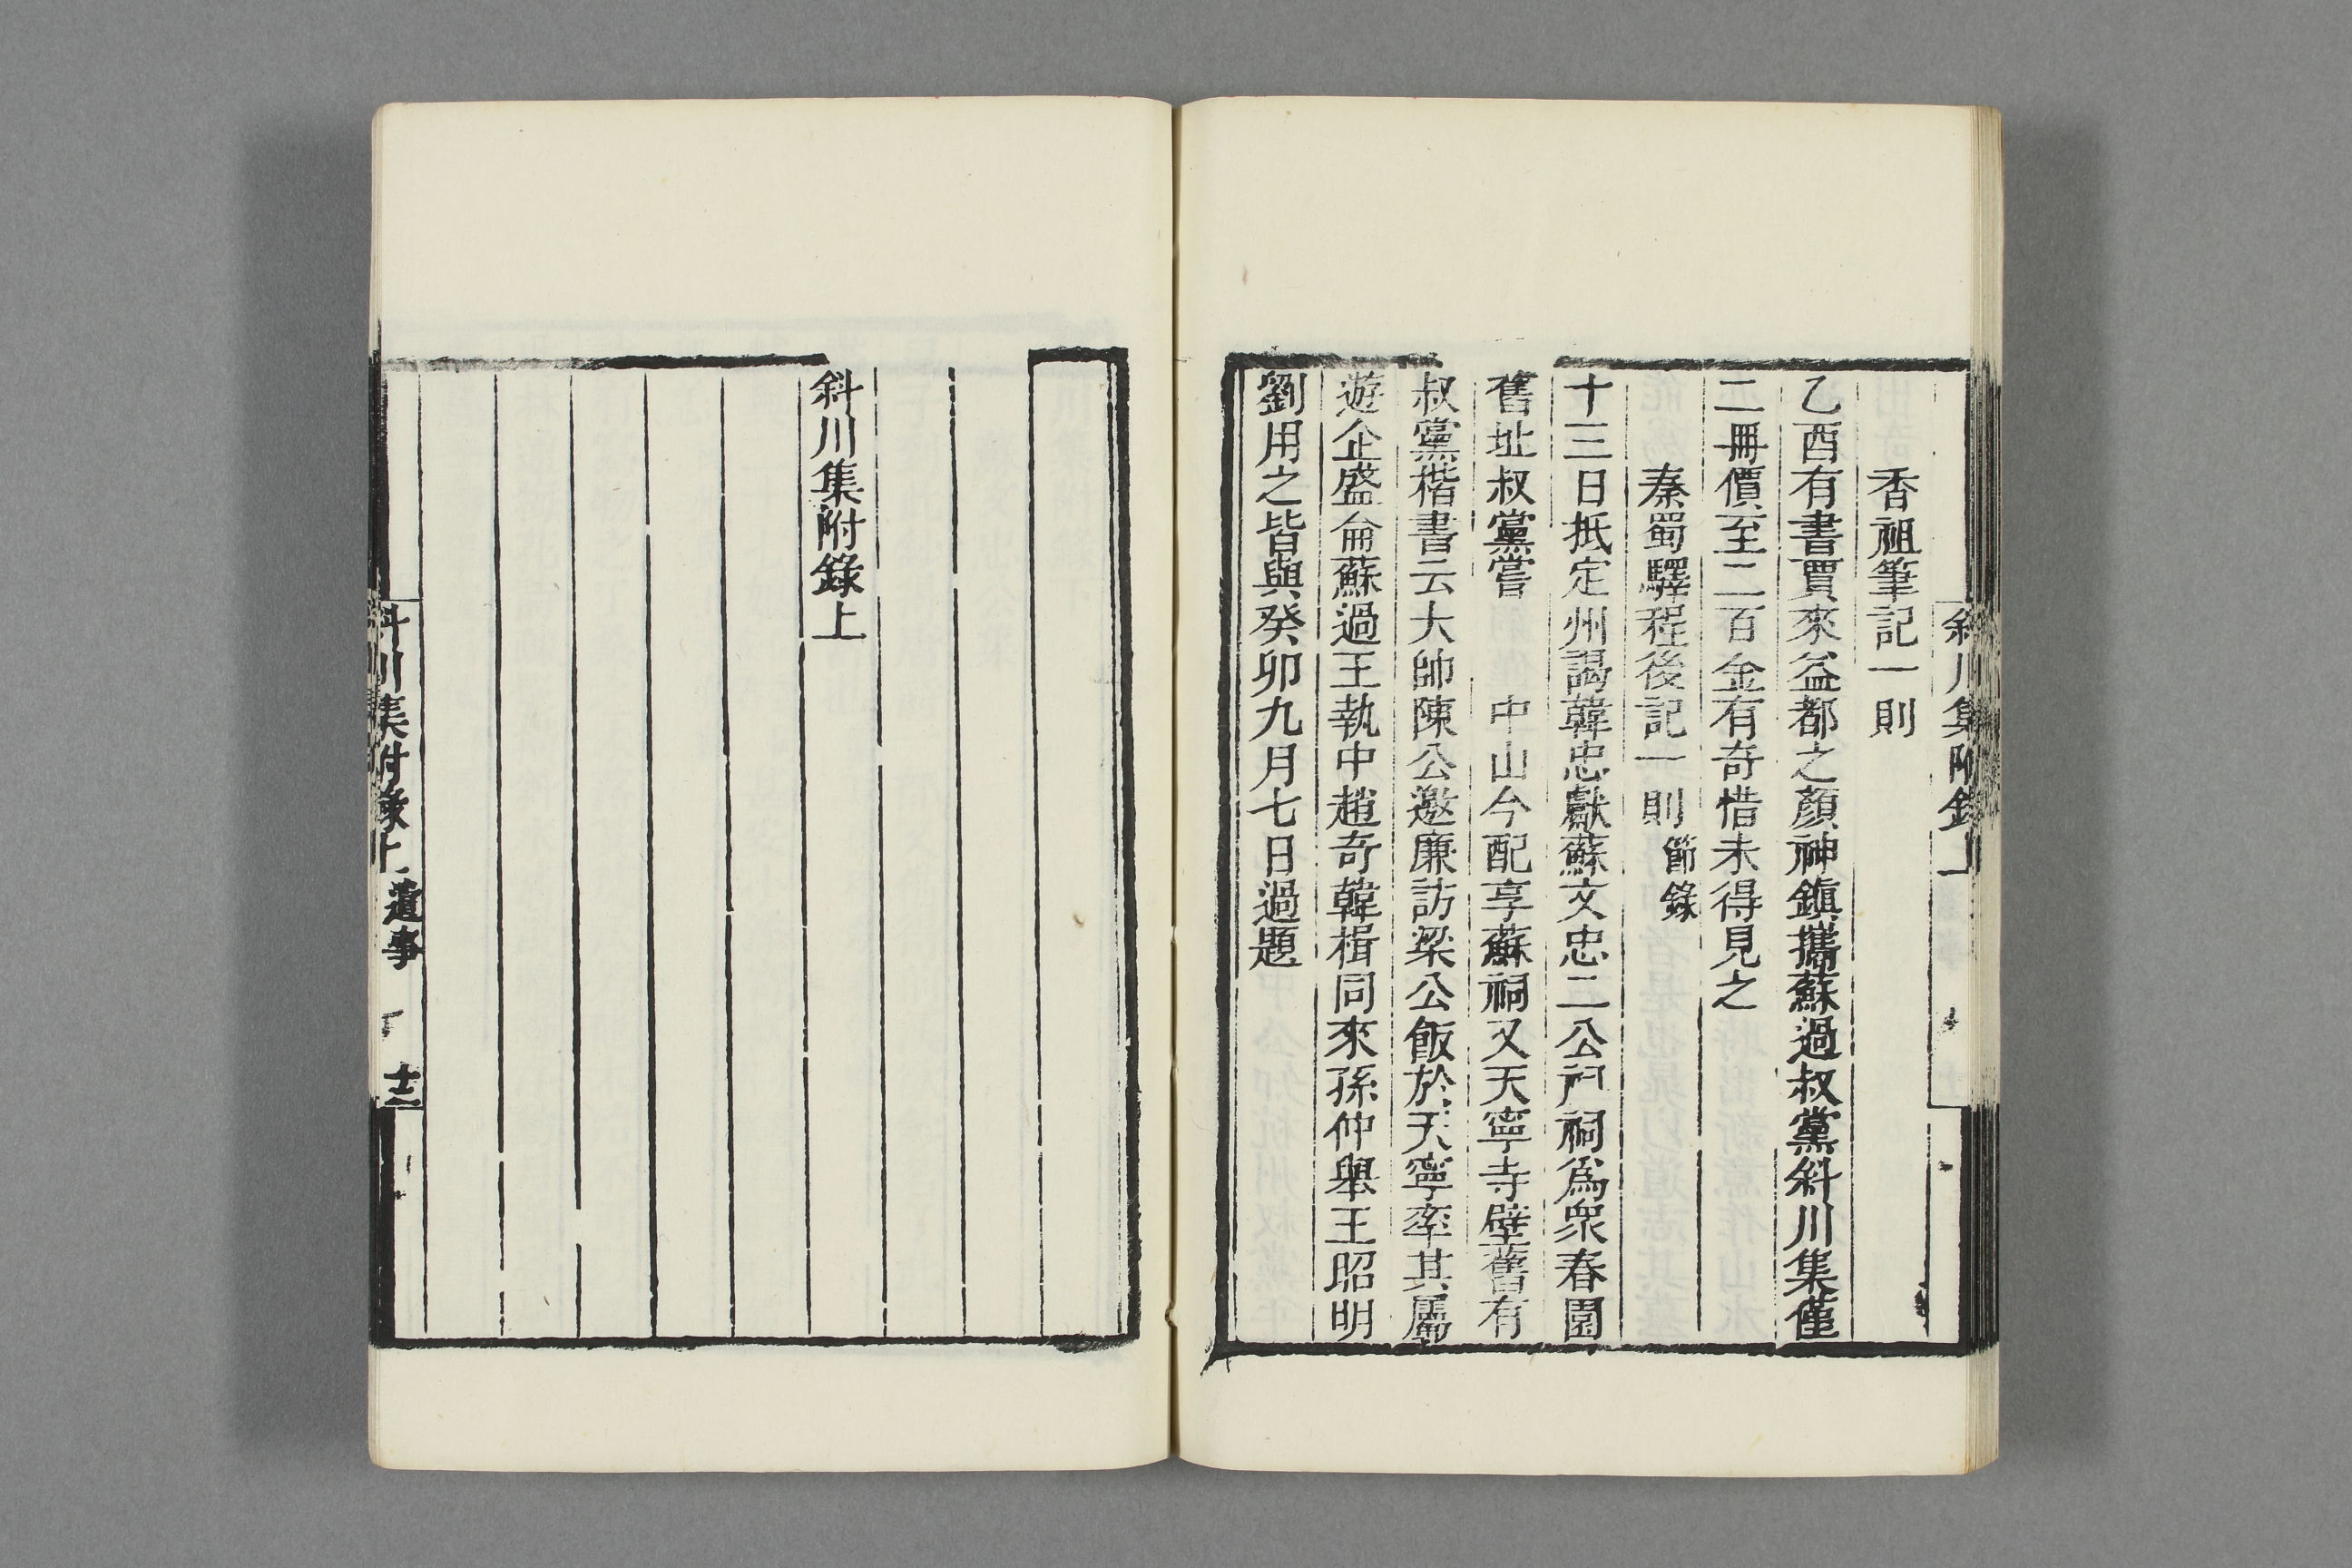 斜川集附錄上
香祖筆記一則
乙酉有書賈來益都之顏神鎭攜蘇過叔黨斜川集僅
二冊價至二百金有奇惜未得見之
秦蜀驛程後記一則節錄
十三日抵定州謁韓忠獻蘇文忠二公祠祠爲衆春園
舊址叔黨嘗 中山今配享蘇祠又天寧寺壁舊有
叔黨楷書云大帥陳公邀廉訪梁公飯於天寧率其屬
遊企盛侖蘇過王執中趙奇韓楫同來孫仲舉王昭明
劉用之皆與癸卯九月七日過題
斜川集附錄上
斜川集附錄上 遺事 十二